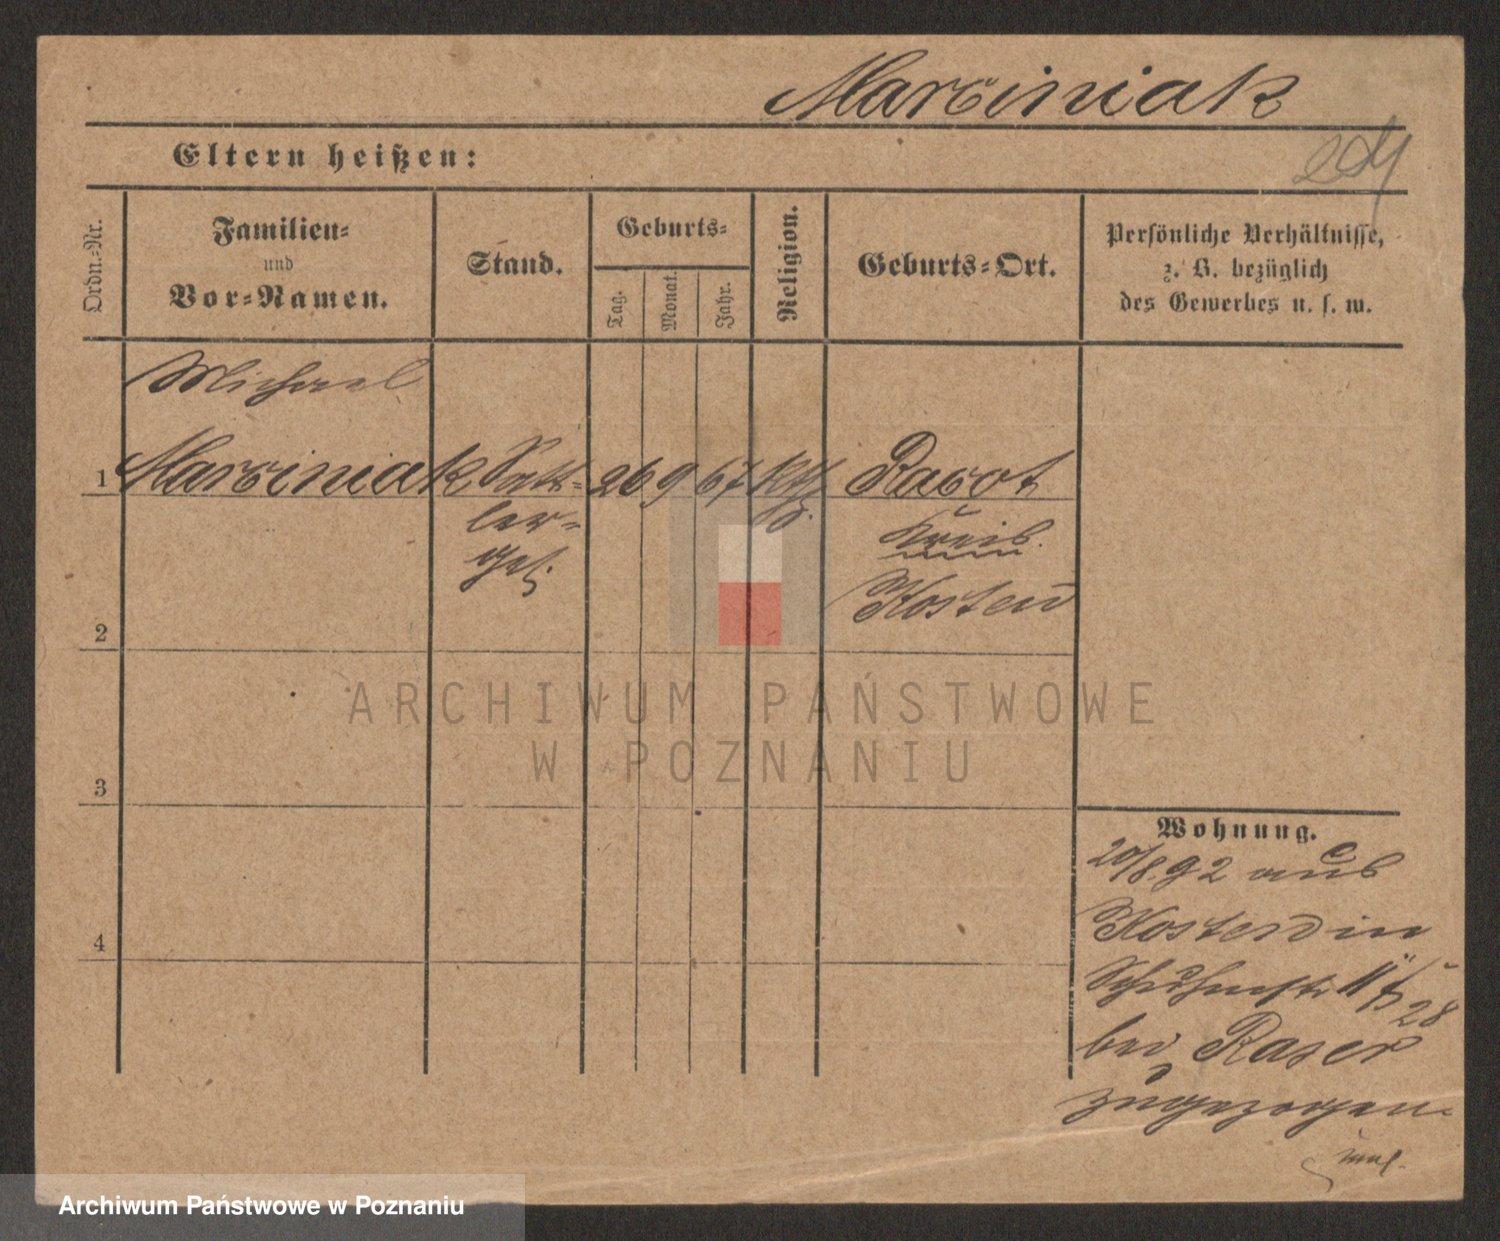 Marciniak
Eltern heißen:
Ordn.-Nr.
Familien-
und
Vor-Namen.
Stand.
Geburts-
Tag.
Monat.
Jahr.
Religion.
Geburts-Ort.
Persönliche Verhältnisse,
z. B. bezüglich
des Gewerbes u. s. w.
Michael
1 Marciniak Satt- 26 9 67 kth. Racot
ler-
ges.
Kreis
Kosten
2
3
4
Wohnung.
20/8.92 aus
Kosten in
11
28
bei Raser
zugezogen.
ARCHIWUM PAŃSTWOWE
W POZNANIU
Archiwum Państwowe w Poznaniu